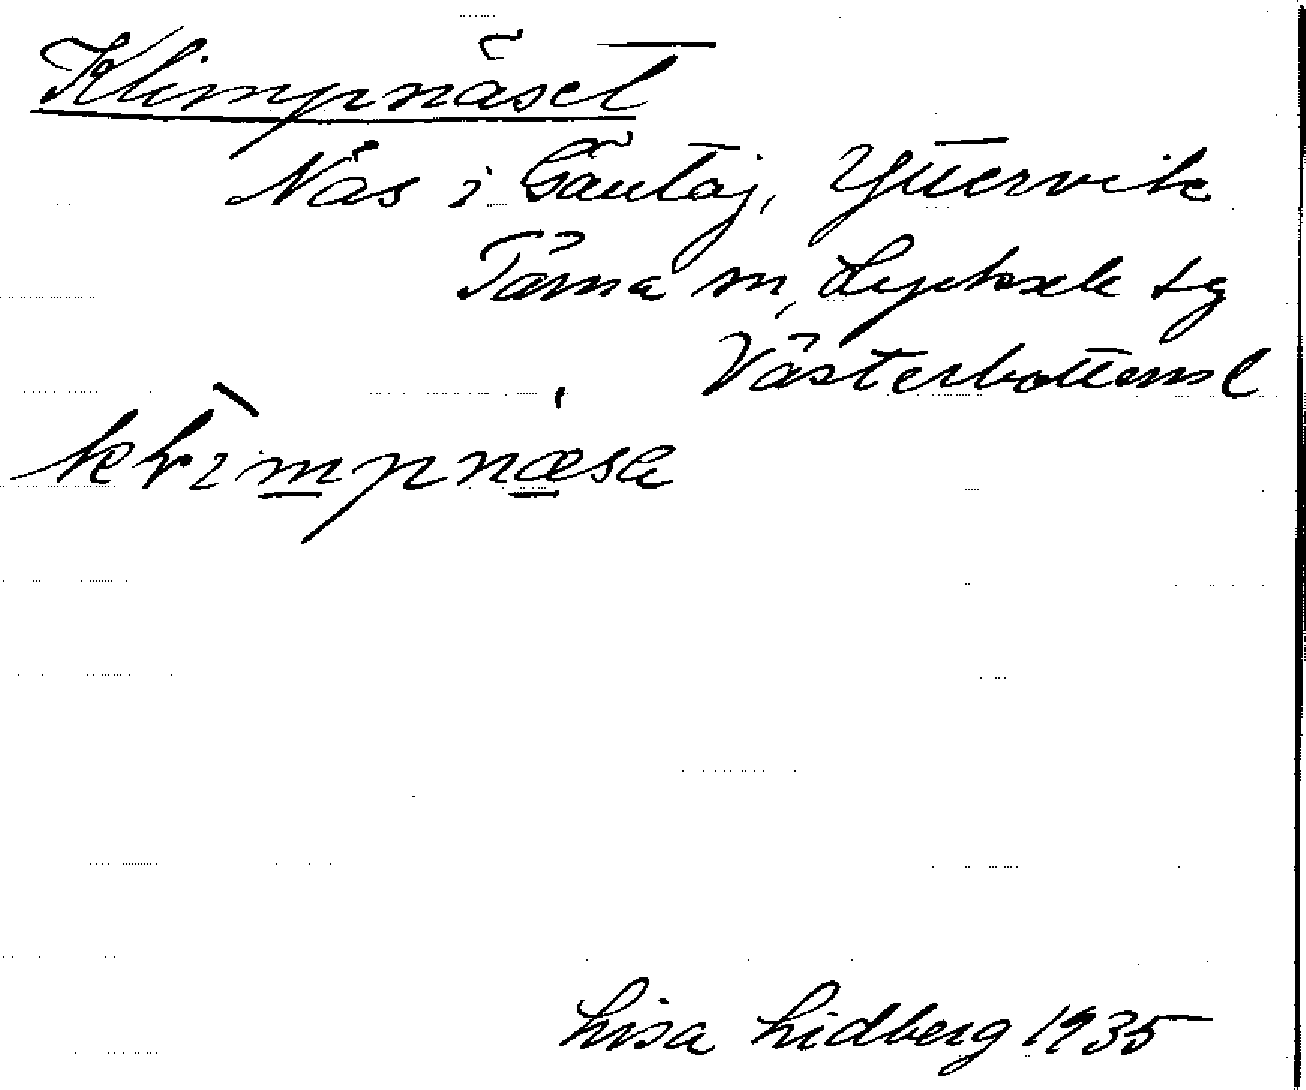 Klimpnäset
Näs i Gäutaj, Yttervik
Tärna sn, Lycksele tg
Västerbottens l
klìmpnæsa
Lisa Lidberg 1935